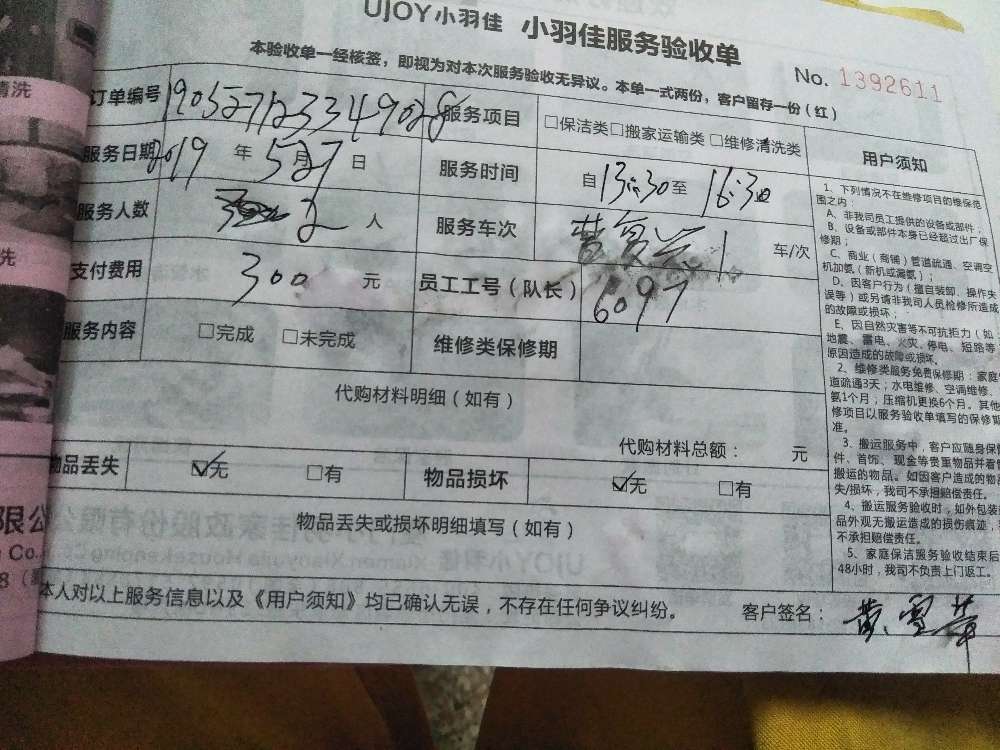 UJOY小羽佳 小羽佳服务验收单
本验收单一经核签，即视为对本次服务验收无异议。本单一式两份，客户留存一份（红）
No. 1392611
订单编号 190527123349028 服务项目 □保洁类□搬家运输类□维修清洗类
服务日期 2019年5月27日 服务时间 自13:30至16:30
服务人数 2人 服务车次 1 车/次
支付费用 300元 员工工号（队长） 6097
服务内容 □完成 □未完成 维修类保修期
代购材料明细（如有）
代购材料总额： 元
物品丢失 ☑无 □有 物品损坏 ☑无 □有
物品丢失或损坏明细填写（如有）
本人对以上服务信息以及《用户须知》均已确认无误，不存在任何争议纠纷。 客户签名：黄雪華
用户须知
1、下列情况不在维修项目的维保范
围之内：
A、非我司员工提供的设备或部件；
B、设备或部件本身已经超过出厂保
修期；
C、商业（商铺）管道疏通、空调空
机加氨（新机或漏氨）；
D、因客户行为（擅自装卸、操作失
误等）或另请非我司人员检修所造成
的故障或损坏；
E、因自然灾害等不可抗拒力（如
地震、雷电、火灾、停电、短路等
原因造成的故障或损坏。
2、维修类服务免费保修期：家庭
道疏通3天；水电维修、空调维修、
氨1个月；压缩机更换6个月。其他
修项目以服务验收单填写的保修期
准。
3、搬运服务中，客户应随身保
件、首饰、现金等贵重物品并看
搬运的物品。如因客户造成的物品
失/损坏，我司不承担赔偿责任。
4、搬运服务验收时，如外包装
品外观无搬运造成的损伤痕迹，
不承担赔偿责任。
5、家庭保洁服务验收结束后
48小时，我司不负责上门返工。
清洗
洗
限公
Co.